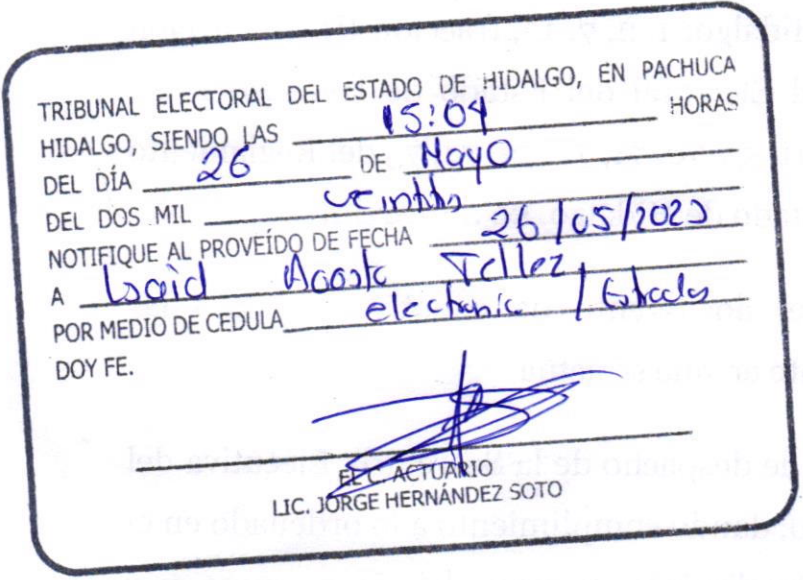 TRIBUNAL ELECTORAL DEL ESTADO DE HIDALGO, EN PACHUCA
HIDALGO, SIENDO LAS 15:04 HORAS
DEL DÍA 26 DE Mayo
DEL DOS MIL
NOTIFIQUE AL PROVEÍDO DE FECHA 26/05/202
A Acosta Tellez
POR MEDIO DE CEDULA electronica / Estrados
DOY FE.
EL C. ACTUARIO
LIC. JORGE HERNÁNDEZ SOTO